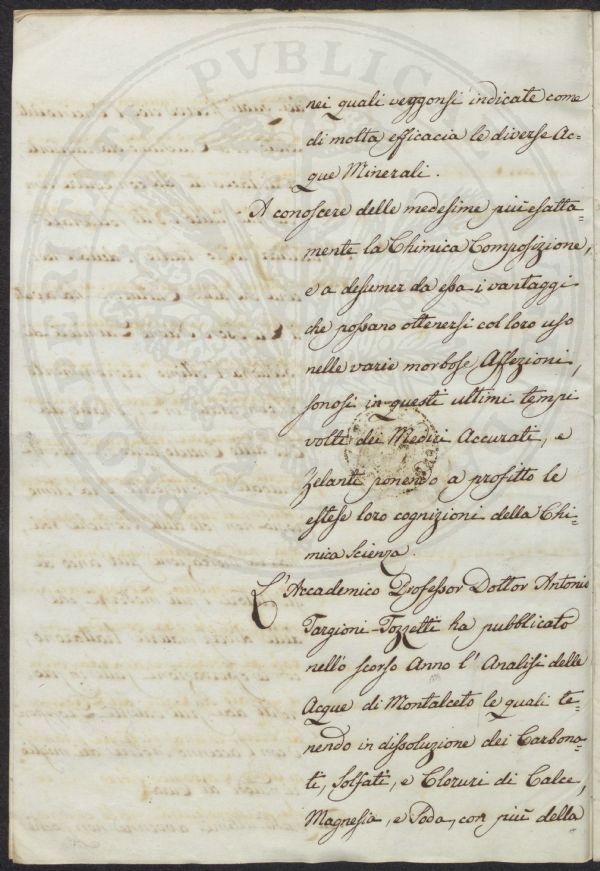 nei quali veggonsi indicate come
di molta efficacia le diverse Ac=
que Minerali.
A conoscere delle medesime più esatta=
mente la Chimica Composizione,
e a desumer da essa i vantaggi
che possano ottenersi col loro uso
nelle varie morbose Affezioni,
sonosi in questi ultimi tempi
volti dei Medici Accurati, e
Zelanti ponendo a profitto le
estese loro cognizioni della Chi=
mica Scienza.
L'Accademico Professor Dottor Antonio
Targioni-Tozzetti ha pubblicato
nello scorso Anno l'Analisi delle
Acque di Montalceto le quali te=
nendo in dissoluzione dei Carbona=
ti, Solfati, e Cloruri di Calce,
Magnesia, e Soda, con più della